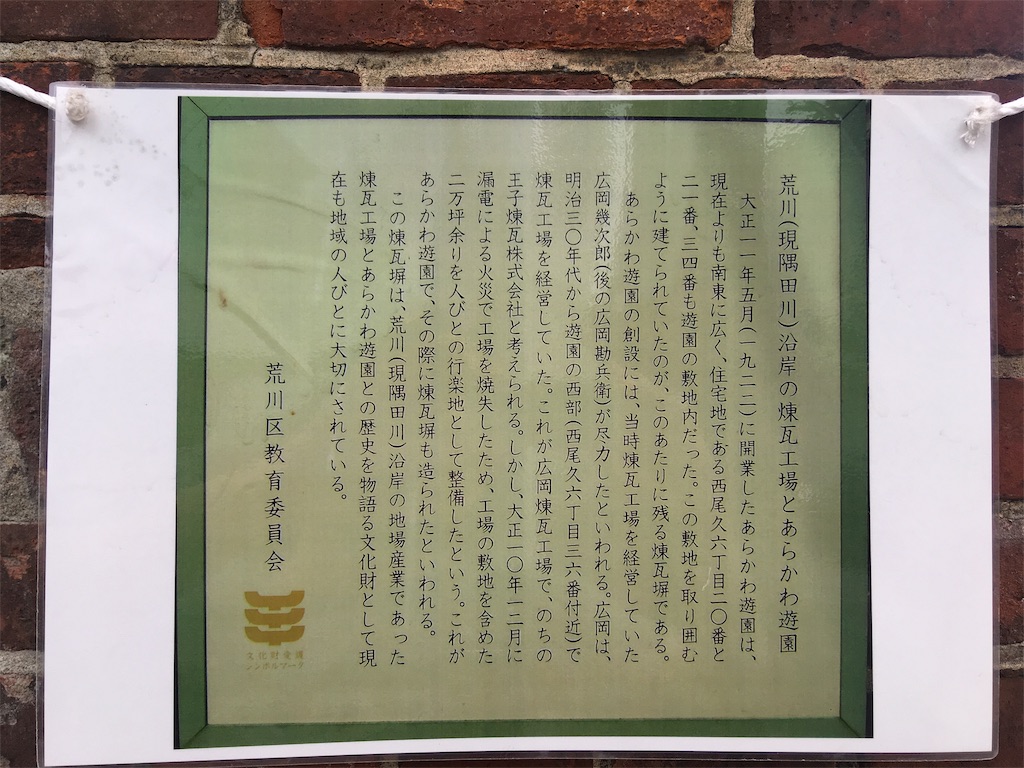 荒川(現隅田川)沿岸の煉瓦工場とあらかわ遊園
大正一一年五月(一九二二)に開業したあらかわ遊園は、
現在よりも南東に広く、住宅地である西尾久六丁目二〇番と
二一番、三四番も遊園の敷地内だった。この敷地を取り囲む
ように建てられていたのが、このあたりに残る煉瓦塀である。
あらかわ遊園の創設には、当時煉瓦工場を経営していた
広岡幾次郎(後の広岡勘兵衛)が尽力したといわれる。広岡は、
明治三〇年代から遊園の西部(西尾久六丁目三六番付近)で
煉瓦工場を経営していた。これが広岡煉瓦工場で、のちの
王子煉瓦株式会社と考えられる。しかし、大正一〇年一二月に
漏電による火災で工場を焼失したため、工場の敷地を含めた
二万坪余りを人びとの行楽地として整備したという。これが
あらかわ遊園で、その際に煉瓦塀も造られたといわれる。
この煉瓦塀は、荒川(現隅田川)沿岸の地場産業であった
煉瓦工場とあらかわ遊園との歴史を物語る文化財として現
在も地域の人びとに大切にされている。
荒川区教育委員会
文化財愛護
シンボルマーク